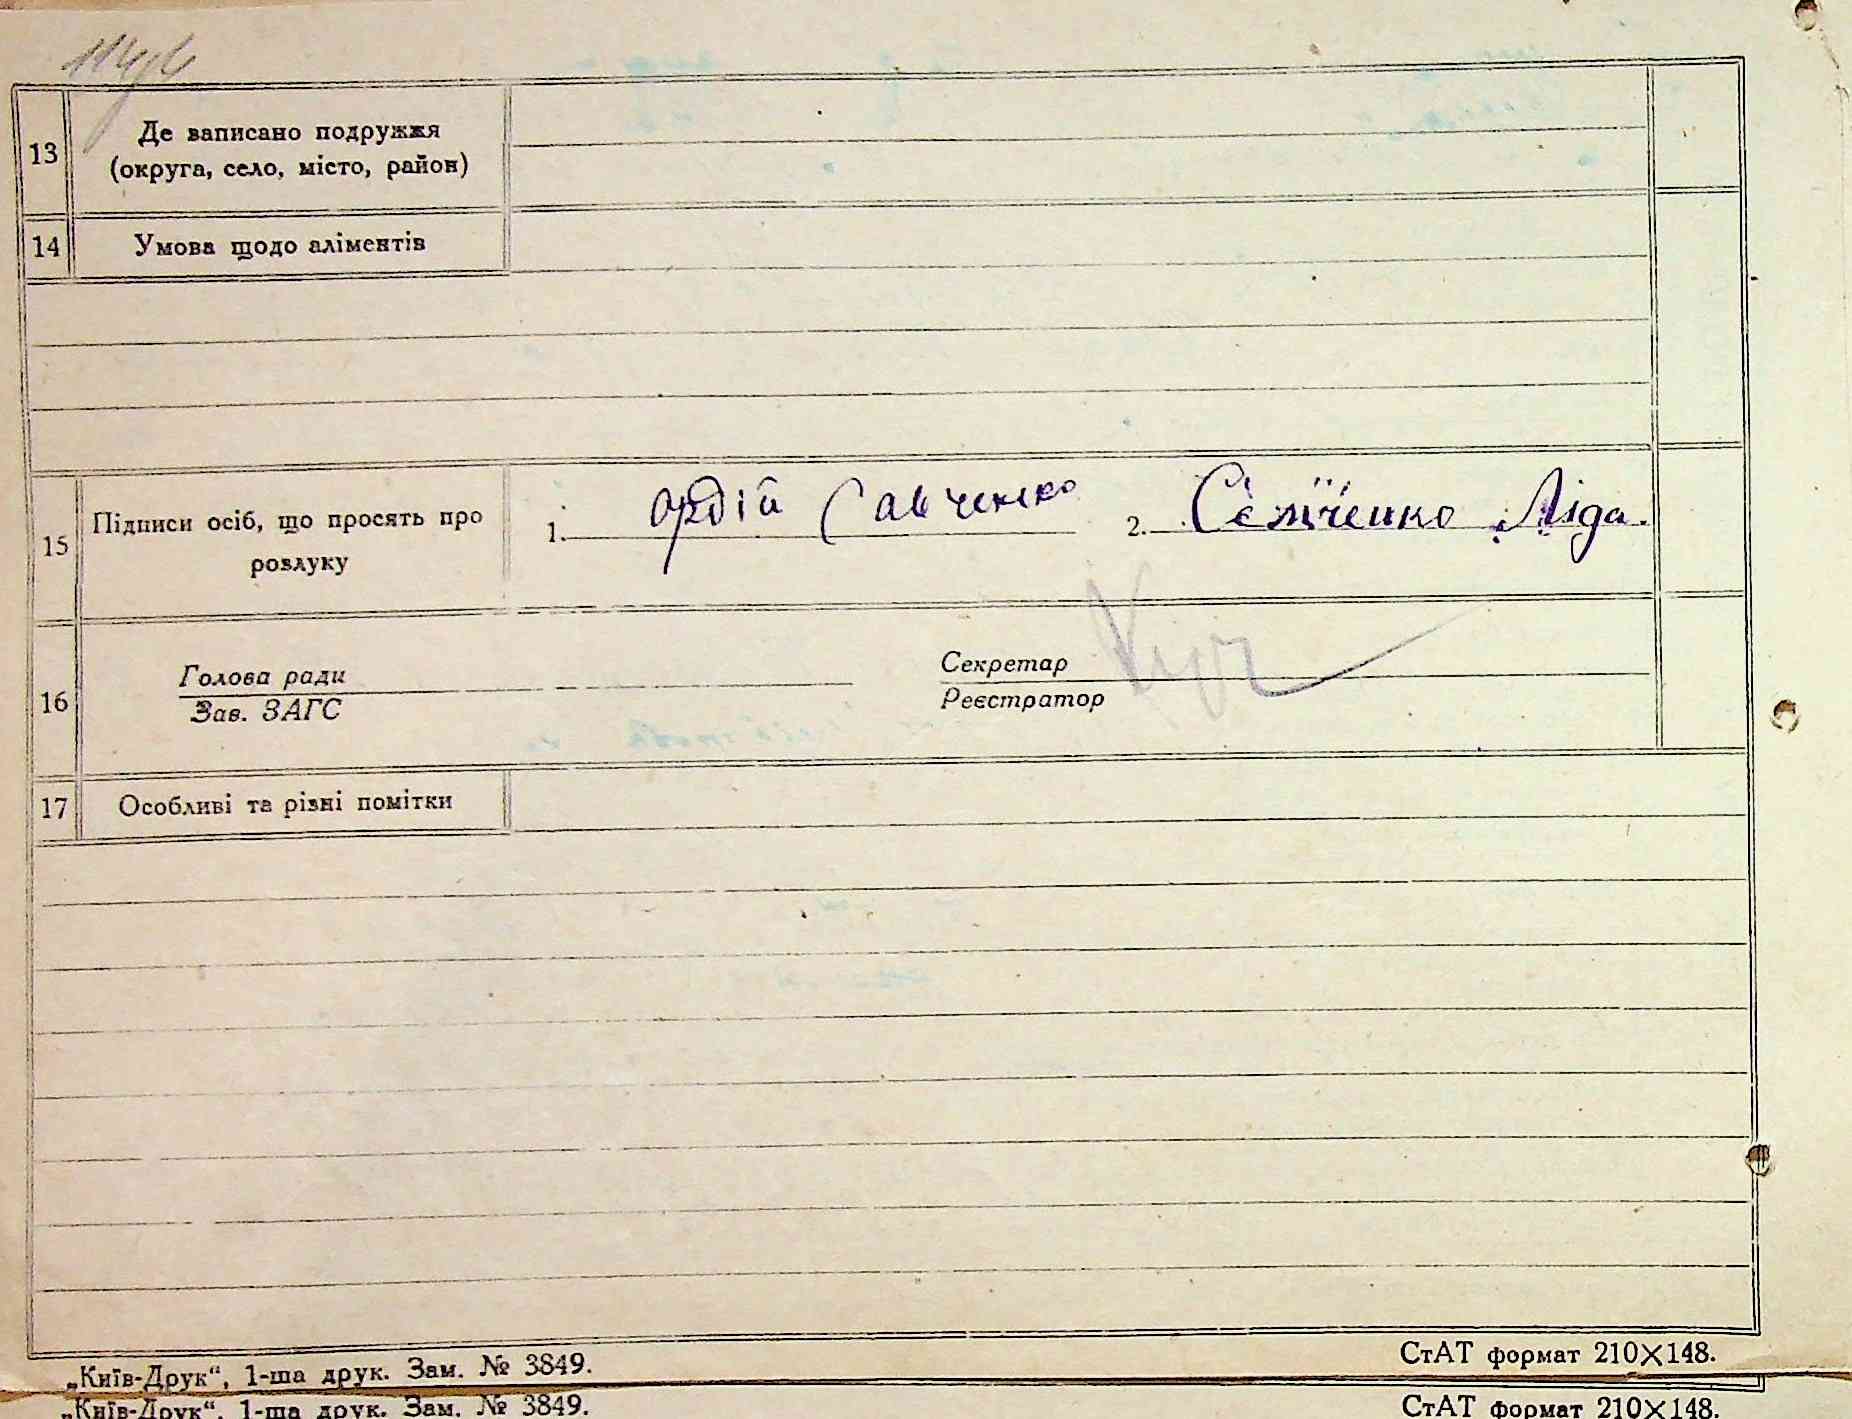 13
Де записано подружжя
(округа, село, місто, район)
14
Умова щодо аліментів
15
Підписи осіб, що просять про
розлуку
1. Савченко 2. Ліда.
16
Голова ради
Зав. ЗАГС
Секретар
Реєстратор
17
Особливі та різні помітки
„Київ-Друк“, 1-ша друк. Зам. № 3849.
СтАТ формат 210×148.
„Київ-Друк“, 1-ша друк. Зам. № 3849.
СтАТ формат 210×148.